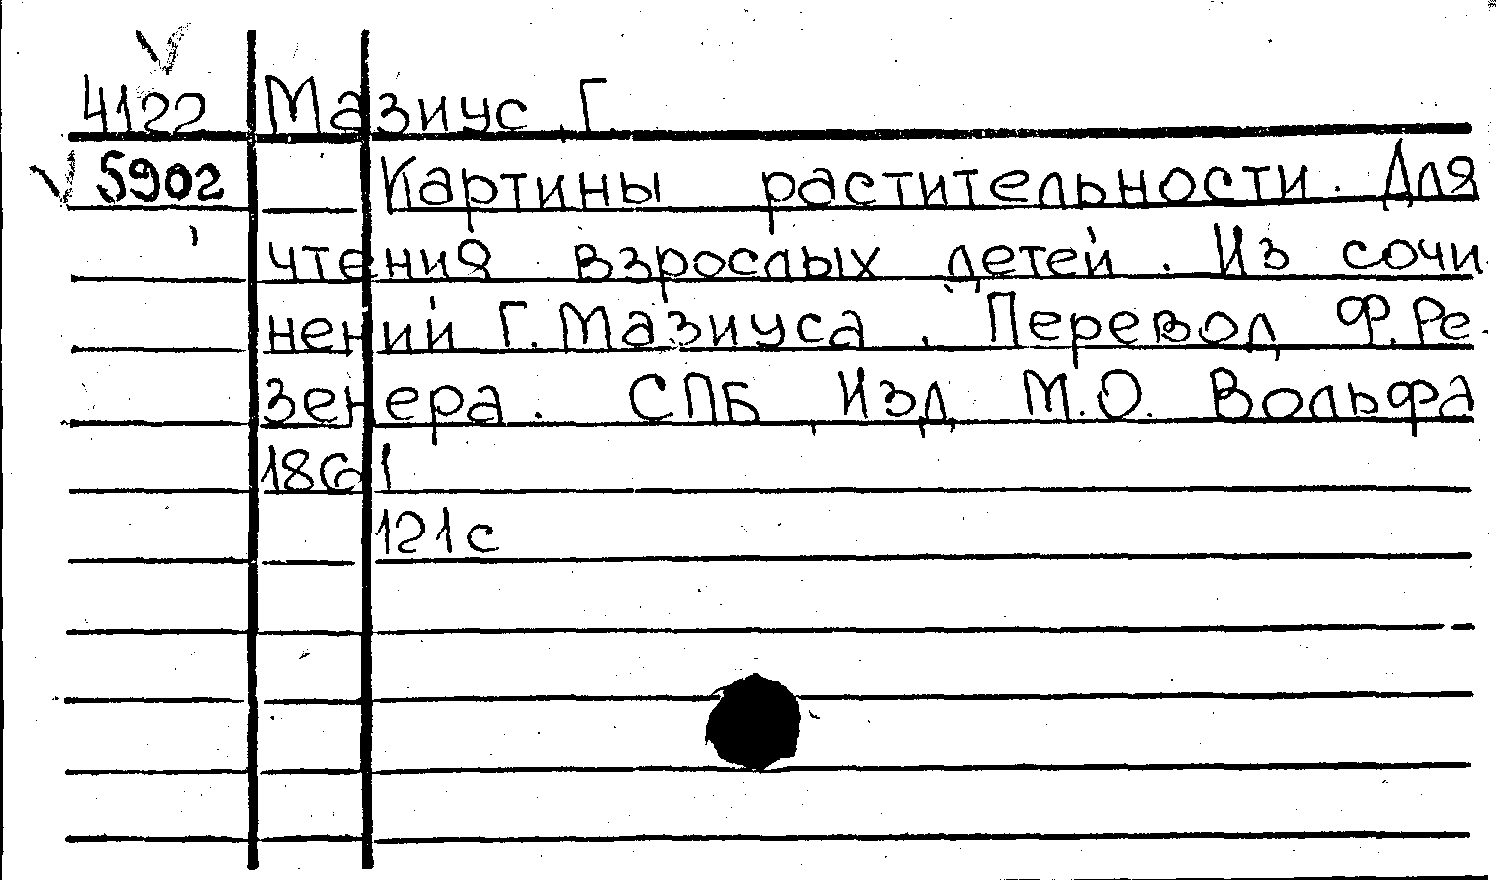 4122 Мазиус, Г.
5902 Картины растительности. Для
чтения взрослых детей. Из сочи
нений Г. Мазиуса. Перевод Ф. Ре
зенера. СПБ, Изд. М.О. Вольфа,
1861
121с